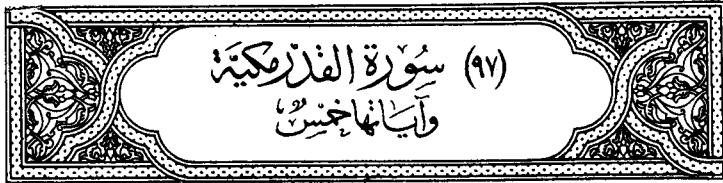 (٩٧) سُورَةُ القَدْرِ مَكِيَّة
وَآيَاتهَا خَمْسٌ